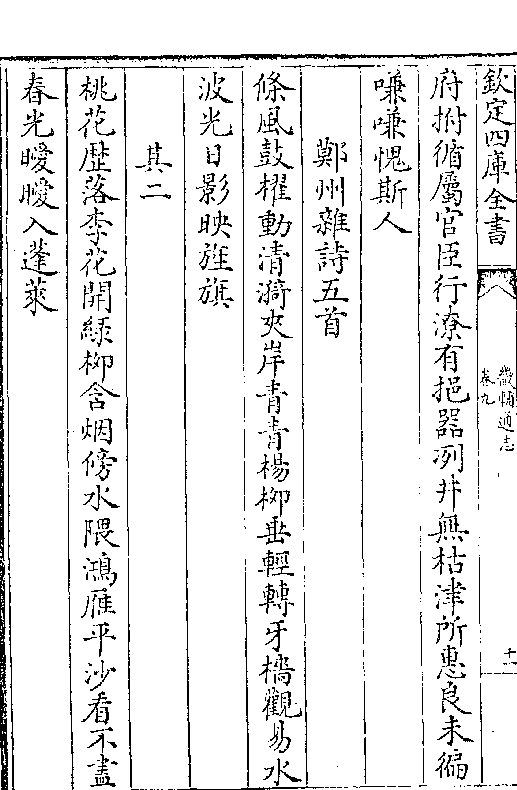 欽定四庫全書
畿輔通志
卷九
十一
府拊循屬官臣行潦有挹器冽井無枯津所惠良未徧
嗛嗛愧斯人
鄭州雜詩五首
條風鼓櫂動清漪夾岸青青楊柳垂輕轉牙檣觀易水
波光日影映旌旗
其二
桃花歴落李花開緑柳含烟傍水隈鴻雁平沙看不盡
春光曖曖入蓬萊